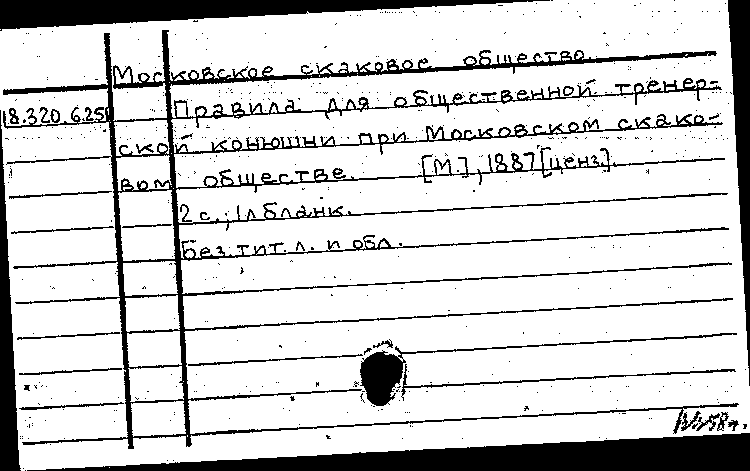 Московское скаковое общество.
18.320.6.251 Правила для общественной тренер=
ской конюшни при Московском скако-
вом обществе. [М.], 1887 [ценз.].
2 с.; 1 л бланк.
Без тит. л. и обл.